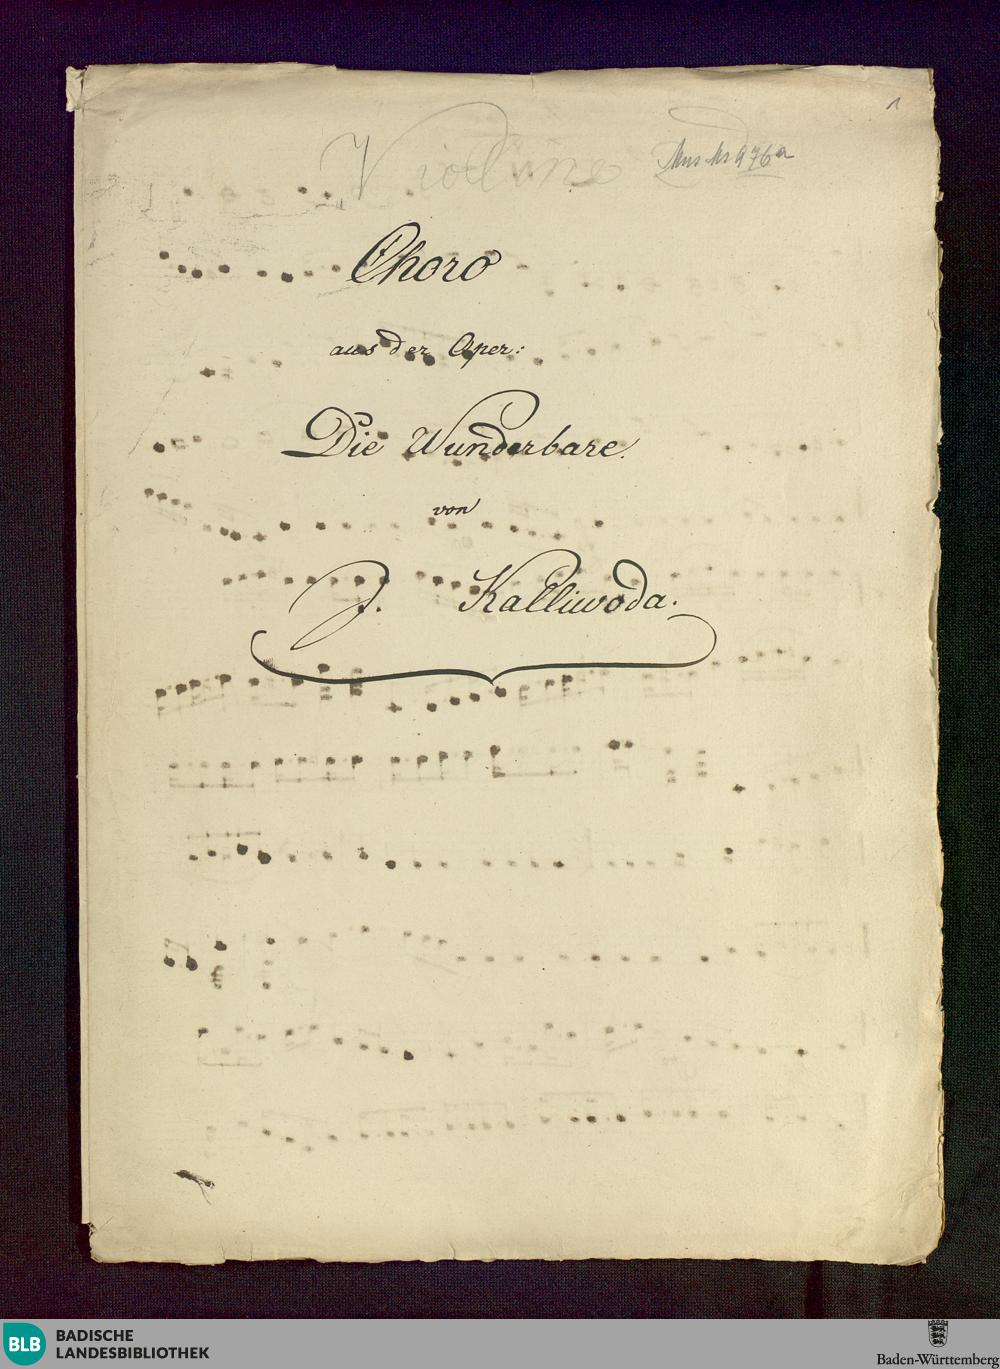 1
Violine
Mus Ms 976a
Choro
aus der Oper:
Die Wunderbare.
von
J. Kalliwoda.
BLB BADISCHE
LANDESBIBLIOTHEK
Baden-Württemberg